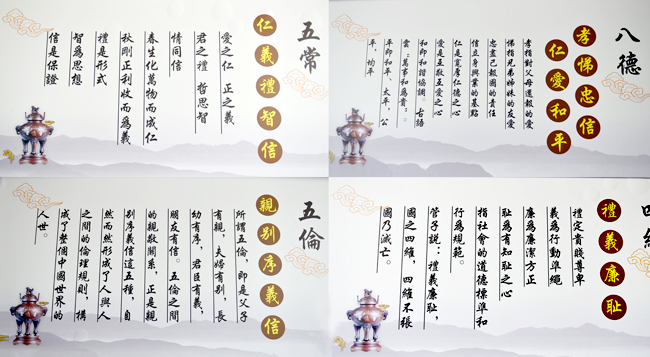 五常
仁義禮智信
愛之仁 正之義
君之禮 哲思智
情同信
春生化萬物而成仁
秋剛正利收而為義
禮是形式
智為思想
信是保證
八德
孝悌忠信
仁愛和平
孝指對父母還報的愛
悌指兄弟姊妹的友愛
忠盡己報國的責任
信立身興業的基點
仁是寬厚仁德之心
愛是互敬互愛之心
和即和諧協調。古語
雲:萬事和為貴。
平即和平、太平、公
平、均平
五倫
親別序義信
所謂五倫,即是父子
有親,夫婦有別,長
幼有序,君臣有義,
朋友有信。五倫之間
的親敬關系,正是親
別序義信這五種,自
然而然形成了人與人
之間的倫理規則,構
成了整個中國世界的
人世。
四維
禮義廉恥
禮定貴賤尊卑
義為行動準繩
廉為廉潔方正
恥為有知恥之心
指社會的道德標準和
行為規範。
管子說:禮義廉恥,
國之四維,四維不張
國乃滅亡。